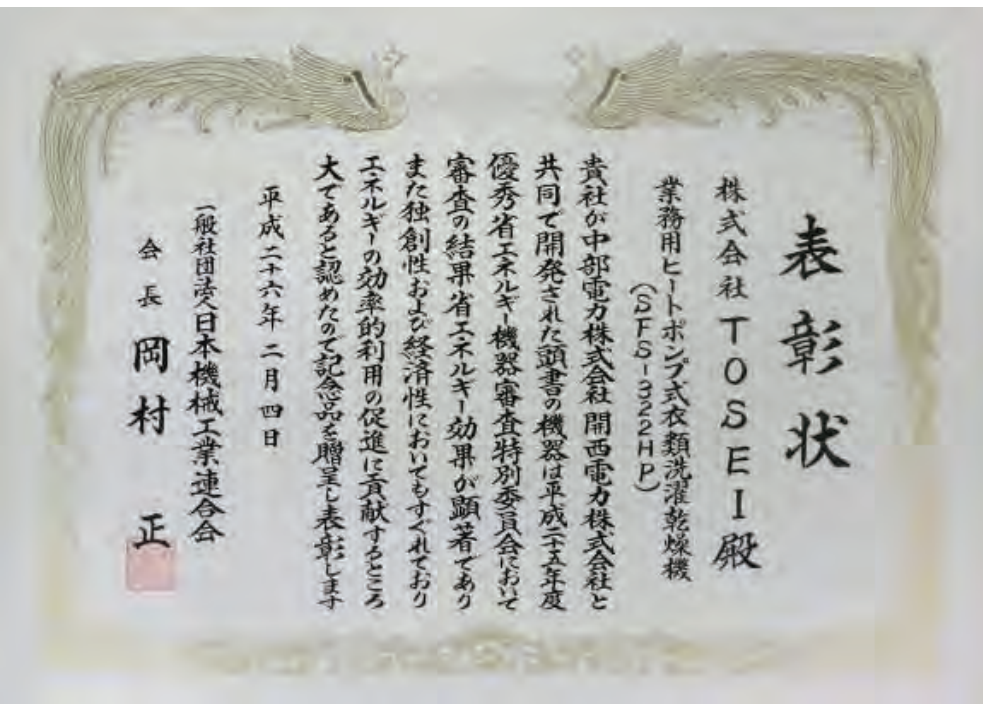 表彰状
株式会社TOSEI殿
業務用ヒートポンプ式衣類洗濯乾燥機
（SFS-322HP）
貴社が中部電力株式会社 関西電力株式会社と
共同で開発された頭書の機器は平成二十五年度
優秀省エネルギー機器審査特別委員会において
審査の結果省エネルギー効果が顕著であり
また独創性および経済性においてもすぐれており
エネルギーの効率的利用の促進に貢献するところ
大であると認めたので記念品を贈呈し表彰します
平成二十六年 二月 四日
一般社団法人日本機械工業連合会
会長 岡村 正